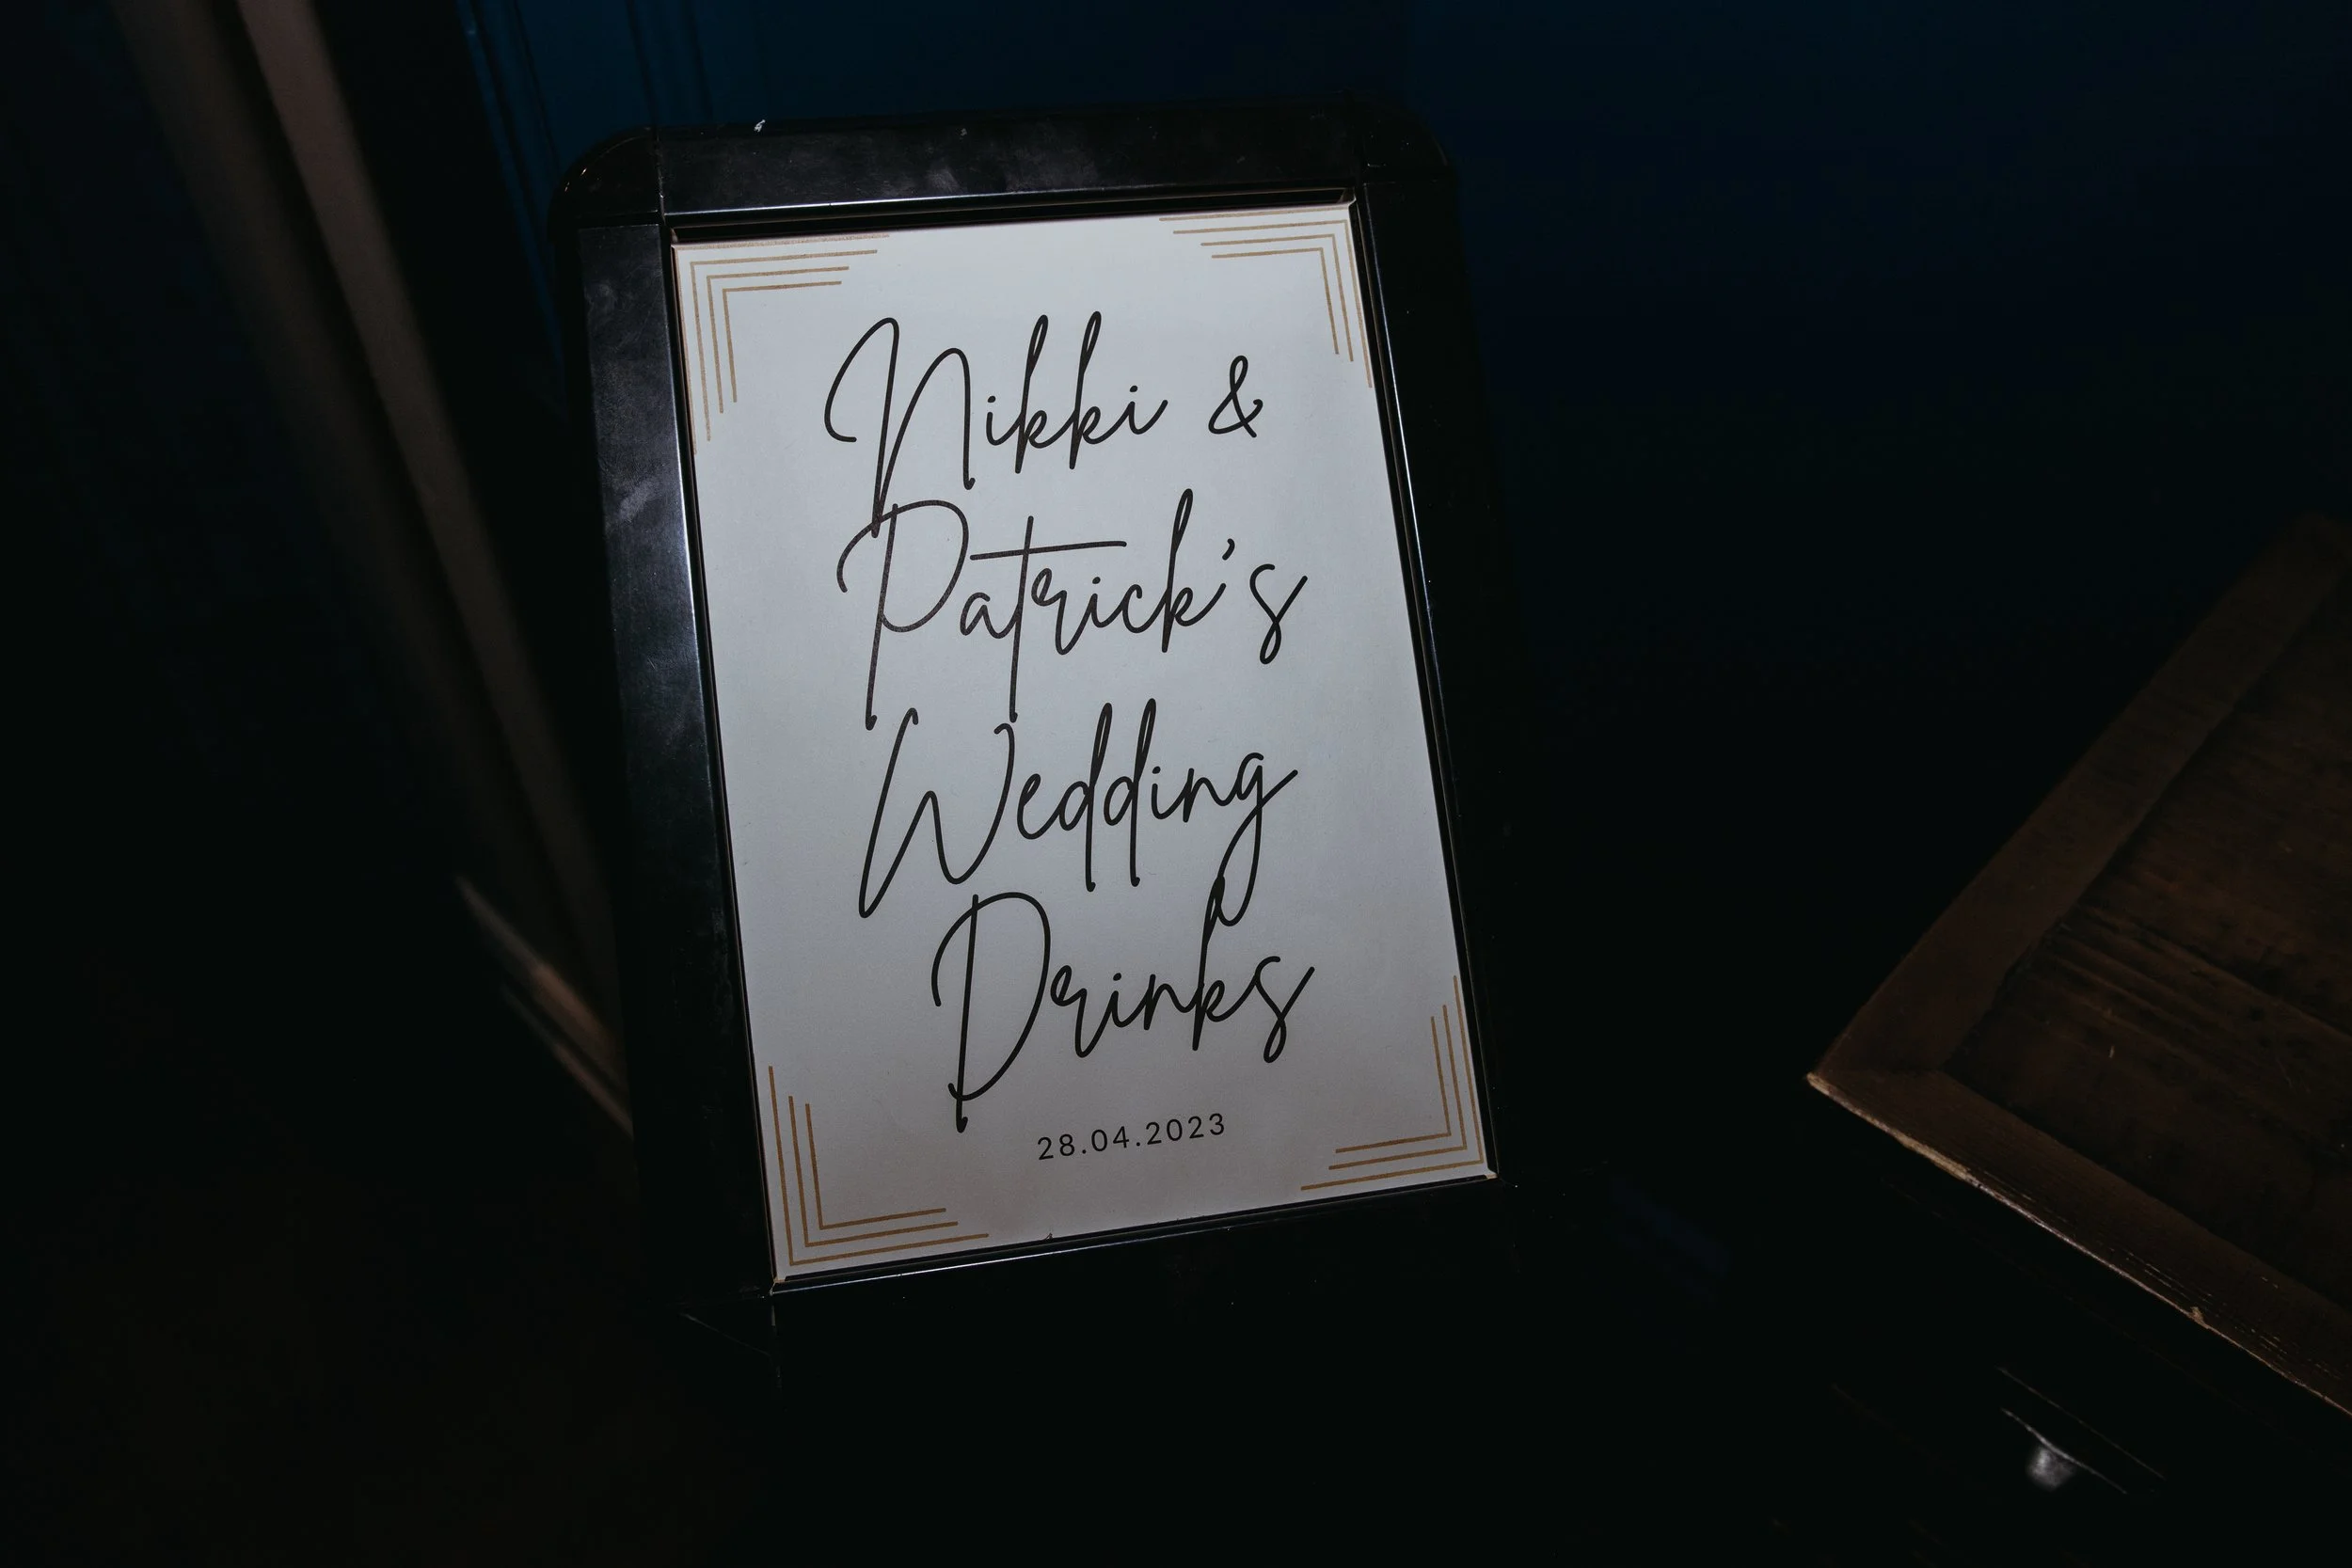 Nikki &
Patrick's
Wedding
Drinks
28.04.2023